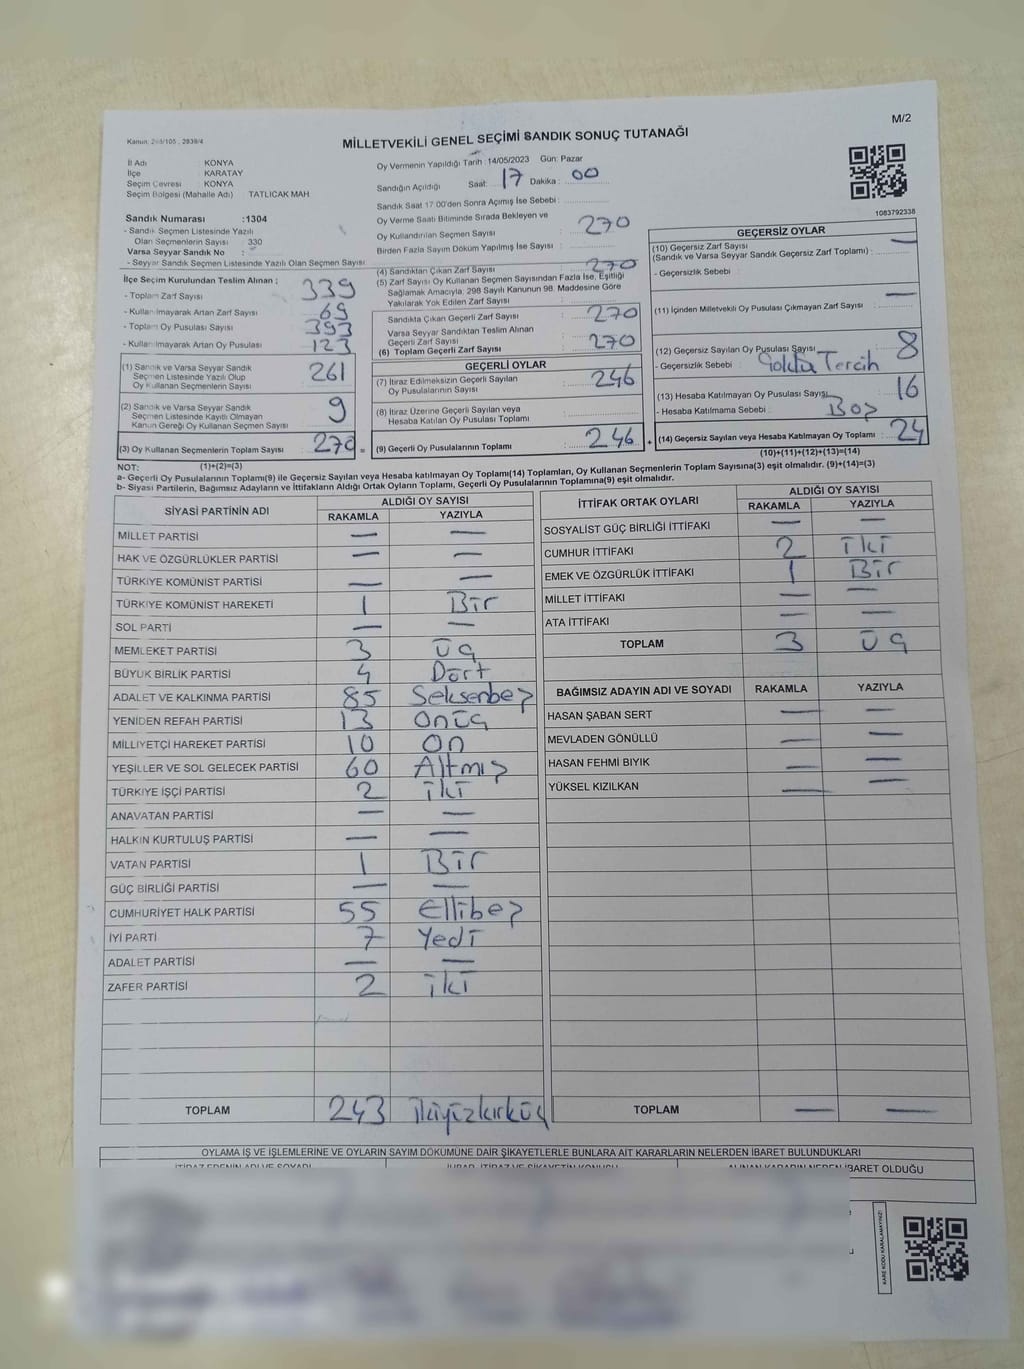 M/2
Kanun:
MİLLETVEKİLİ GENEL SEÇİMİ SANDIK SONUÇ TUTANAĞI
İl Adı KONYA
İlçe KARATAY
Seçim Çevresi KONYA
Seçim Bölgesi (Mahalle Adı) TATLICAK MAH.
Sandık Numarası :1304
- Sandık Seçmen Listesinde Yazılı
Olan Seçmenlerin Sayısı : 330
Varsa Seyyar Sandık No :
- Seyyar Sandık Seçmen Listesinde Yazılı Olan Seçmen Sayısı
Oy Vermenin Yapıldığı Tarih : 14/05/2023 Gün: Pazar
Sandığın Açıldığı Saat: 17 Dakika : 00
Sandık Saat 17:00'den Sonra Açımış İse Sebebi :
Oy Verme Saati Bitiminde Sırada Bekleyen ve
Oy Kullandırılan Seçmen Sayısı : 270
Birden Fazla Sayım Döküm Yapılmış İse Sayısı :
1083792338
İlçe Seçim Kurulundan Teslim Alınan ;
- Toplam Zarf Sayısı 339
- Kullanılmayarak Artan Zarf Sayısı 69
- Toplam Oy Pusulası Sayısı 393
- Kullanılmayarak Artan Oy Pusulası 123
(1) Sandık ve Varsa Seyyar Sandık
Seçmen Listesinde Yazılı Olup
Oy Kullanan Seçmenlerin Sayısı 261
(2) Sandık ve Varsa Seyyar Sandık
Seçmen Listesinde Kayıtlı Olmayan
Kanun Gereği Oy Kullanan Seçmen Sayısı 9
(3) Oy Kullanan Seçmenlerin Toplam Sayısı 270 =
(4) Sandıktan Çıkan Zarf Sayısı : 270
(5) Zarf Sayısı Oy Kullanan Seçmen Sayısından Fazla İse, Eşitliği
Sağlamak Amacıyla, 298 Sayılı Kanunun 98. Maddesine Göre
Yakılarak Yok Edilen Zarf Sayısı :
Sandıkta Çıkan Geçerli Zarf Sayısı : 270
Varsa Seyyar Sandıktan Teslim Alınan
Geçerli Zarf Sayısı
(6) Toplam Geçerli Zarf Sayısı : 270
GEÇERLİ OYLAR
(7) İtiraz Edilmeksizin Geçerli Sayılan
Oy Pusulalarının Sayısı : 246
(8) İtiraz Üzerine Geçerli Sayılan veya
Hesaba Katılan Oy Pusulası Toplamı :
(9) Geçerli Oy Pusulalarının Toplamı : 246 +
GEÇERSİZ OYLAR
(10) Geçersiz Zarf Sayısı
(Sandık ve Varsa Seyyar Sandık Geçersiz Zarf Toplamı) : —
- Geçersizlik Sebebi :
(11) İçinden Milletvekili Oy Pusulası Çıkmayan Zarf Sayısı : —
(12) Geçersiz Sayılan Oy Pusulası Sayısı : 8
- Geçersizlik Sebebi : Tercih
(13) Hesaba Katılmayan Oy Pusulası Sayısı : 16
- Hesaba Katılmama Sebebi : Boş
(14) Geçersiz Sayılan veya Hesaba Katılmayan Oy Toplamı : 24
(10)+(11)+(12)+(13)=(14)
NOT: (1)+(2)=(3)
a- Geçerli Oy Pusulalarının Toplamı(9) ile Geçersiz Sayılan veya Hesaba Katılmayan Oy Toplamı(14) Toplamları, Oy Kullanan Seçmenlerin Toplam Sayısına(3) eşit olmalıdır. (9)+(14)=(3)
b- Siyasi Partilerin, Bağımsız Adayların ve İttifakların Aldığı Ortak Oyların Toplamı, Geçerli Oy Pusulalarının Toplamına(9) eşit olmalıdır.
SİYASİ PARTİNİN ADI ALDIĞI OY SAYISI
RAKAMLA YAZIYLA
MİLLET PARTİSİ — —
HAK VE ÖZGÜRLÜKLER PARTİSİ — —
TÜRKİYE KOMÜNİST PARTİSİ — —
TÜRKİYE KOMÜNİST HAREKETİ 1 Bir
SOL PARTİ — —
MEMLEKET PARTİSİ 3 Üç
BÜYÜK BİRLİK PARTİSİ 4 Dört
ADALET VE KALKINMA PARTİSİ 85 Seksenbeş
YENİDEN REFAH PARTİSİ 13 Onüç
MİLLİYETÇİ HAREKET PARTİSİ 10 On
YEŞİLLER VE SOL GELECEK PARTİSİ 60 Altmış
TÜRKİYE İŞÇİ PARTİSİ 2 iki
ANAVATAN PARTİSİ — —
HALKIN KURTULUŞ PARTİSİ — —
VATAN PARTİSİ 1 Bir
GÜÇ BİRLİĞİ PARTİSİ — —
CUMHURİYET HALK PARTİSİ 55 Ellibeş
İYİ PARTİ 7 Yedi
ADALET PARTİSİ — —
ZAFER PARTİSİ 2 iki
TOPLAM 243 ikiyüzkırküç
İTTİFAK ORTAK OYLARI ALDIĞI OY SAYISI
RAKAMLA YAZIYLA
SOSYALİST GÜÇ BİRLİĞİ İTTİFAKI — —
CUMHUR İTTİFAKI 2 iki
EMEK VE ÖZGÜRLÜK İTTİFAKI 1 Bir
MİLLET İTTİFAKI — —
ATA İTTİFAKI — —
TOPLAM 3 Üç
BAĞIMSIZ ADAYIN ADI VE SOYADI RAKAMLA YAZIYLA
HASAN ŞABAN SERT — —
MEVLADEN GÖNÜLLÜ — —
HASAN FEHMİ BIYIK — —
YÜKSEL KIZILKAN — —
TOPLAM — —
OYLAMA İŞ VE İŞLEMLERİNE VE OYLARIN SAYIM DÖKÜMÜNE DAİR ŞİKAYETLERLE BUNLARA AİT KARARLARIN NELERDEN İBARET BULUNDUKLARI
İTİRAZ EDENİN ADI VE SOYADI İHBAR, İTİRAZ VE ŞİKAYETİN KONUSU ALINAN KARARIN NEDEN İBARET OLDUĞU
KARE KODU KARALAMAYINIZ!